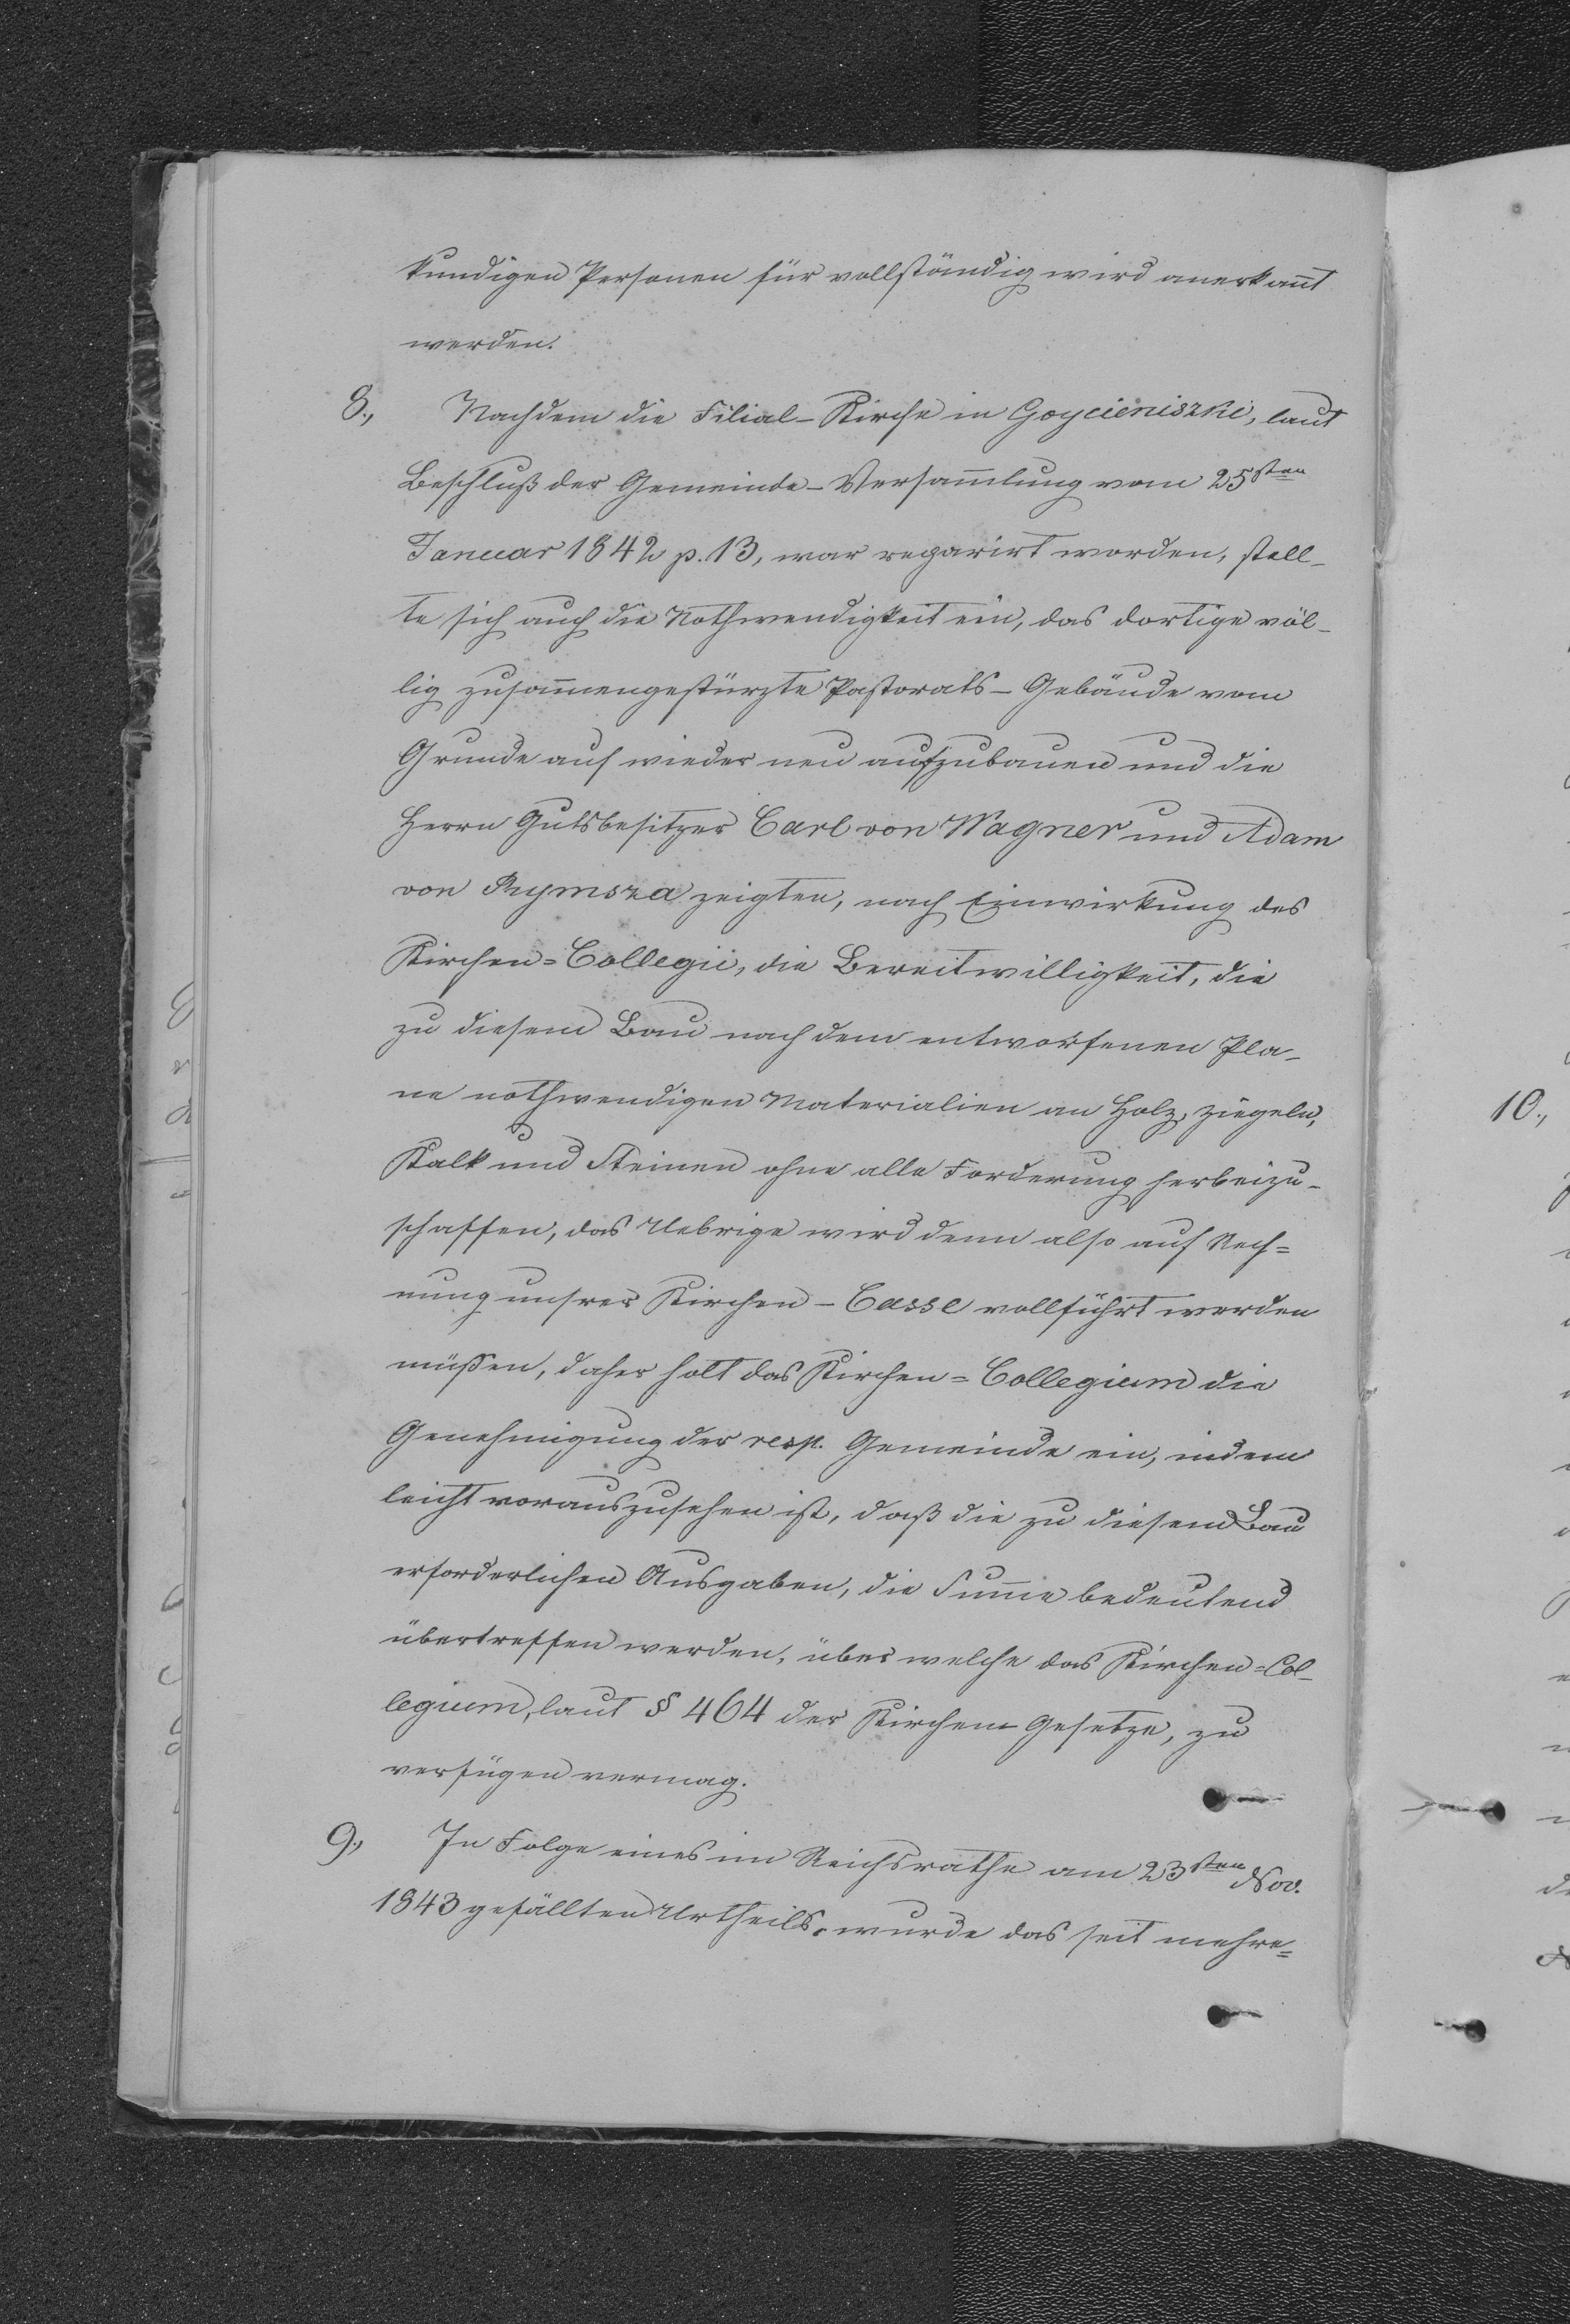 kundigen Personen für vollständig wird anerkannt
werden.
8., Nachdem die Filial-Kirche in Goycieniszki, laut
Beschluß der Gemeinde-Versammlung vom 25sten
Januar 1842 p. 13, war reparirt worden, stell-
te sich auch die Nothwendigkeit ein, das dortige völ-
lig zusammengestürzte Pastorats-Gebäude vom
Grunde auf wieder neu aufzubauen und die
Herrn Gutsbesitzer Carl von Wagner und Adam
von Rymsza zeigten, nach Einwirkung des
Kirchen=Collegii, die Bereitwilligkeit, die
zu diesem Bau nach dem entworfenen Pla-
ne nothwendigen Materialien an Holz, Ziegeln,
Kalk und Steinen ohne alle Forderung herbeizu-
schaffen, das Uebrige wird denn also auf Rech=
nung unsrer Kirchen-Casse vollführt werden
müssen, daher holt das Kirchen=Collegium die
Genehmigung der resp. Gemeinde ein, indem
leicht vorauszusehen ist, daß die zu diesem Bau
erforderlichen Ausgaben, die Summe bedeutend
übertreffen werden, über welche das Kirchen=Col-
legium, laut § 464 der Kirchen-Gesetze, zu
verfügen vermag.
9., In Folge eines im Reichsrathe am 23sten Nov.
1843 gefällten Urtheils, wurde das seit mehre=
10.,